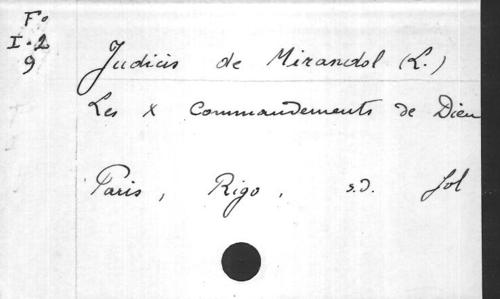 Fo
I.2
9
Judicis de Mirandol (L.)
Les X Commandements de Dieu
Paris, Rigo, s.d. fol